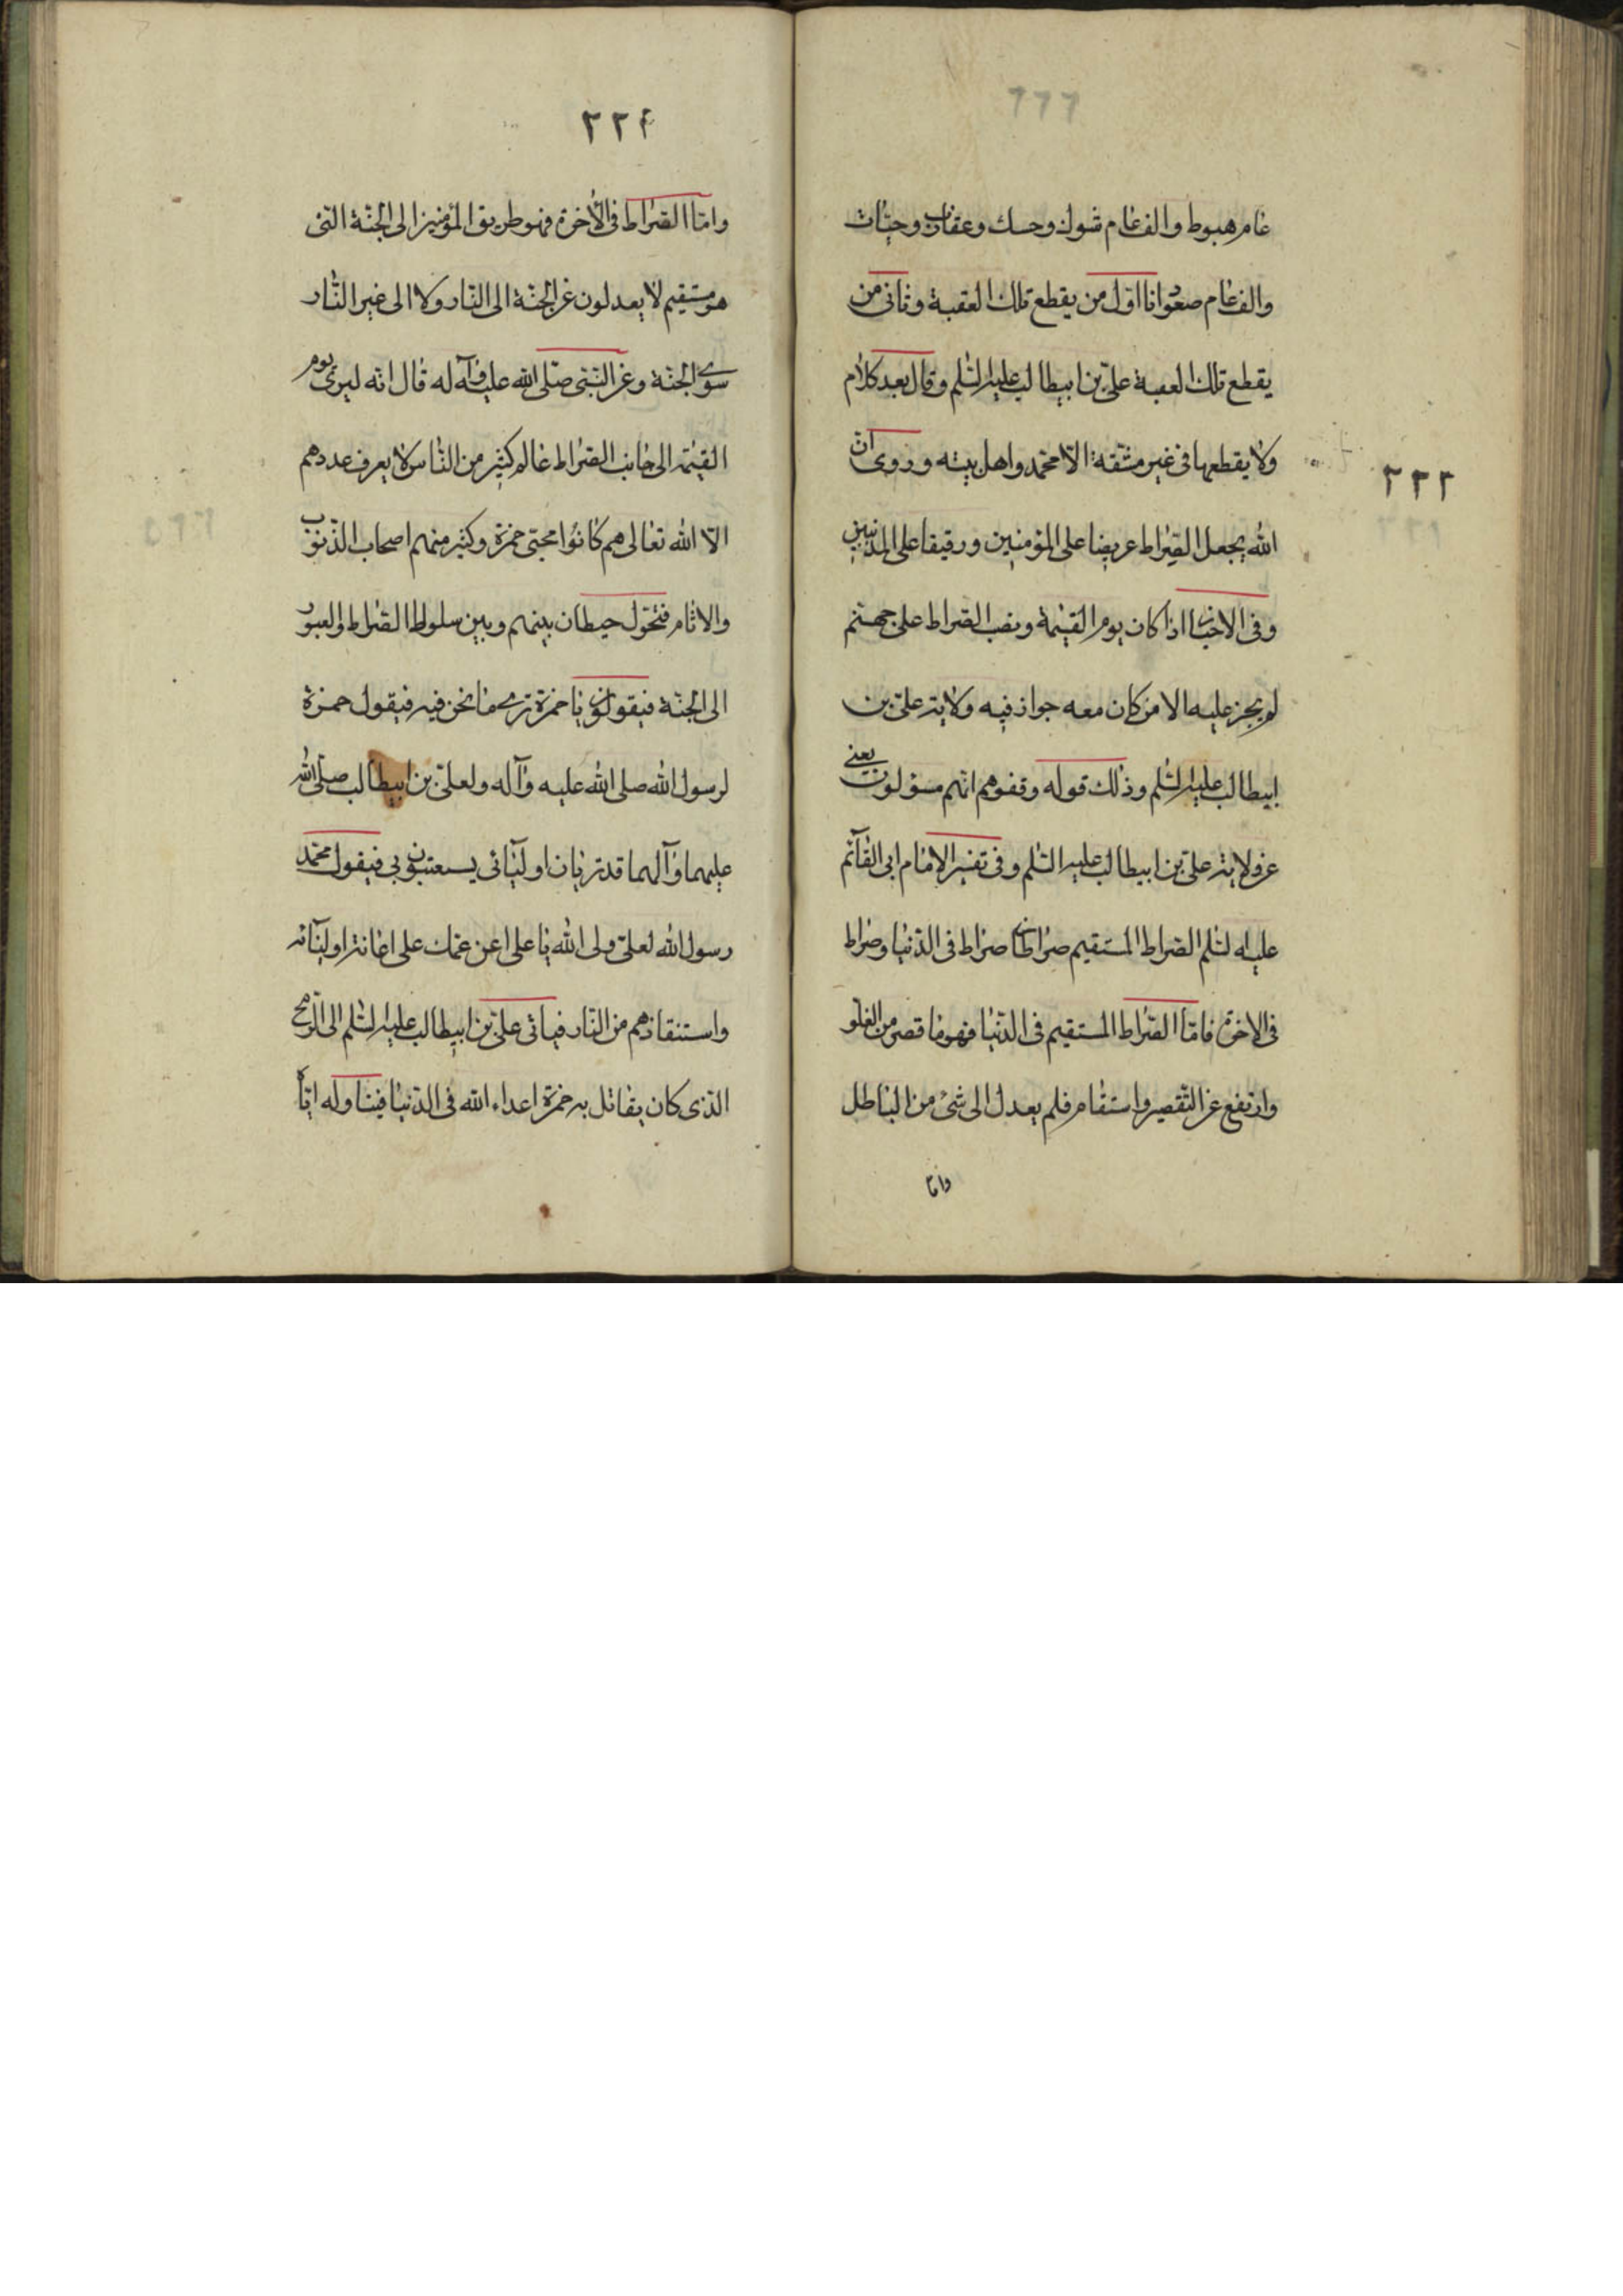 ٢٢٣
عام هبوط والف عام شوك وحسك وعقارب وحيّات
والف عام صعود انا اوّل من يقطع تلك العقبة وثانى من
يقطع تلك العقبة علىّ بن ابيطالب عليه السّلم وقال بعد كلام
ولا يقطعها فى غير مشقّة الّا محمّد واهل بيته وروى انّ
الله يجعل الصّراط عريضا على المؤمنين ورقيقا على المذنبين
وفى الاخبار اذا كان يوم القيٰمة ونصب الصراط على جهنّم
لم يجز عليه الا من كان معه جواز فيه ولاية علىّ بن
ابيطالب عليه السّلم وذلك قوله وقفوهم انّهم مسؤلون يعنى
عن ولاية علىّ بن ابيطالب عليه السّلم وفى تفسير الامام ابى القآئم
عليه السّلم الصراط المستقيم صراطان صراط فى الدّنيا وصراط
فى الاخرة فامّا الصّراط المستقيم فى الدّنيا فهو ما قصر من الغلو
وارتفع عن التّقصير واستقام فلم يعدل الى شئ من الباطل
وامّا
٢٢٤
وامّا الصّراط فى الٔاخرة فهو طريق المؤمنين الى الجنّة الّتى
هو مستقيم لا يعدلون عن الجنّة الى النّار ولا الى غير النّار
سوى الجنّة وعن النّبىّ صلّى الله عليه وآله قال انّه ليرى يوم
القيٰمة الى جانب الصّراط عالم كثير من النّاس لا يعرف عددهم
الّا الله تعالى هم كانوا محبّى حمزة وكثير منهم اصحاب الذّنوب
والاثام فتحول حيطان بينهم وبين سلوك الصّراط والعبور
الى الجنّة فيقولون يا حمزة ترى ما نحن فيه فيقول حمزة
لرسول الله صلى الله عليه وآله ولعلىّ بن ابيطالب صلّى الله
عليهما وآلهما قد تريان اوليائى يستغيثون بى فيقول محمّد
رسول الله لعلىّ ولى الله يا على اعن عمّك على اغاثة اوليآئه
واستنقاذهم من النّار فياتى علىّ بن ابيطالب عليه السّلم الى الرّمح
الّذى كان يقاتل به حمزة اعداء الله فى الدّنيا فيناوله ايّاه